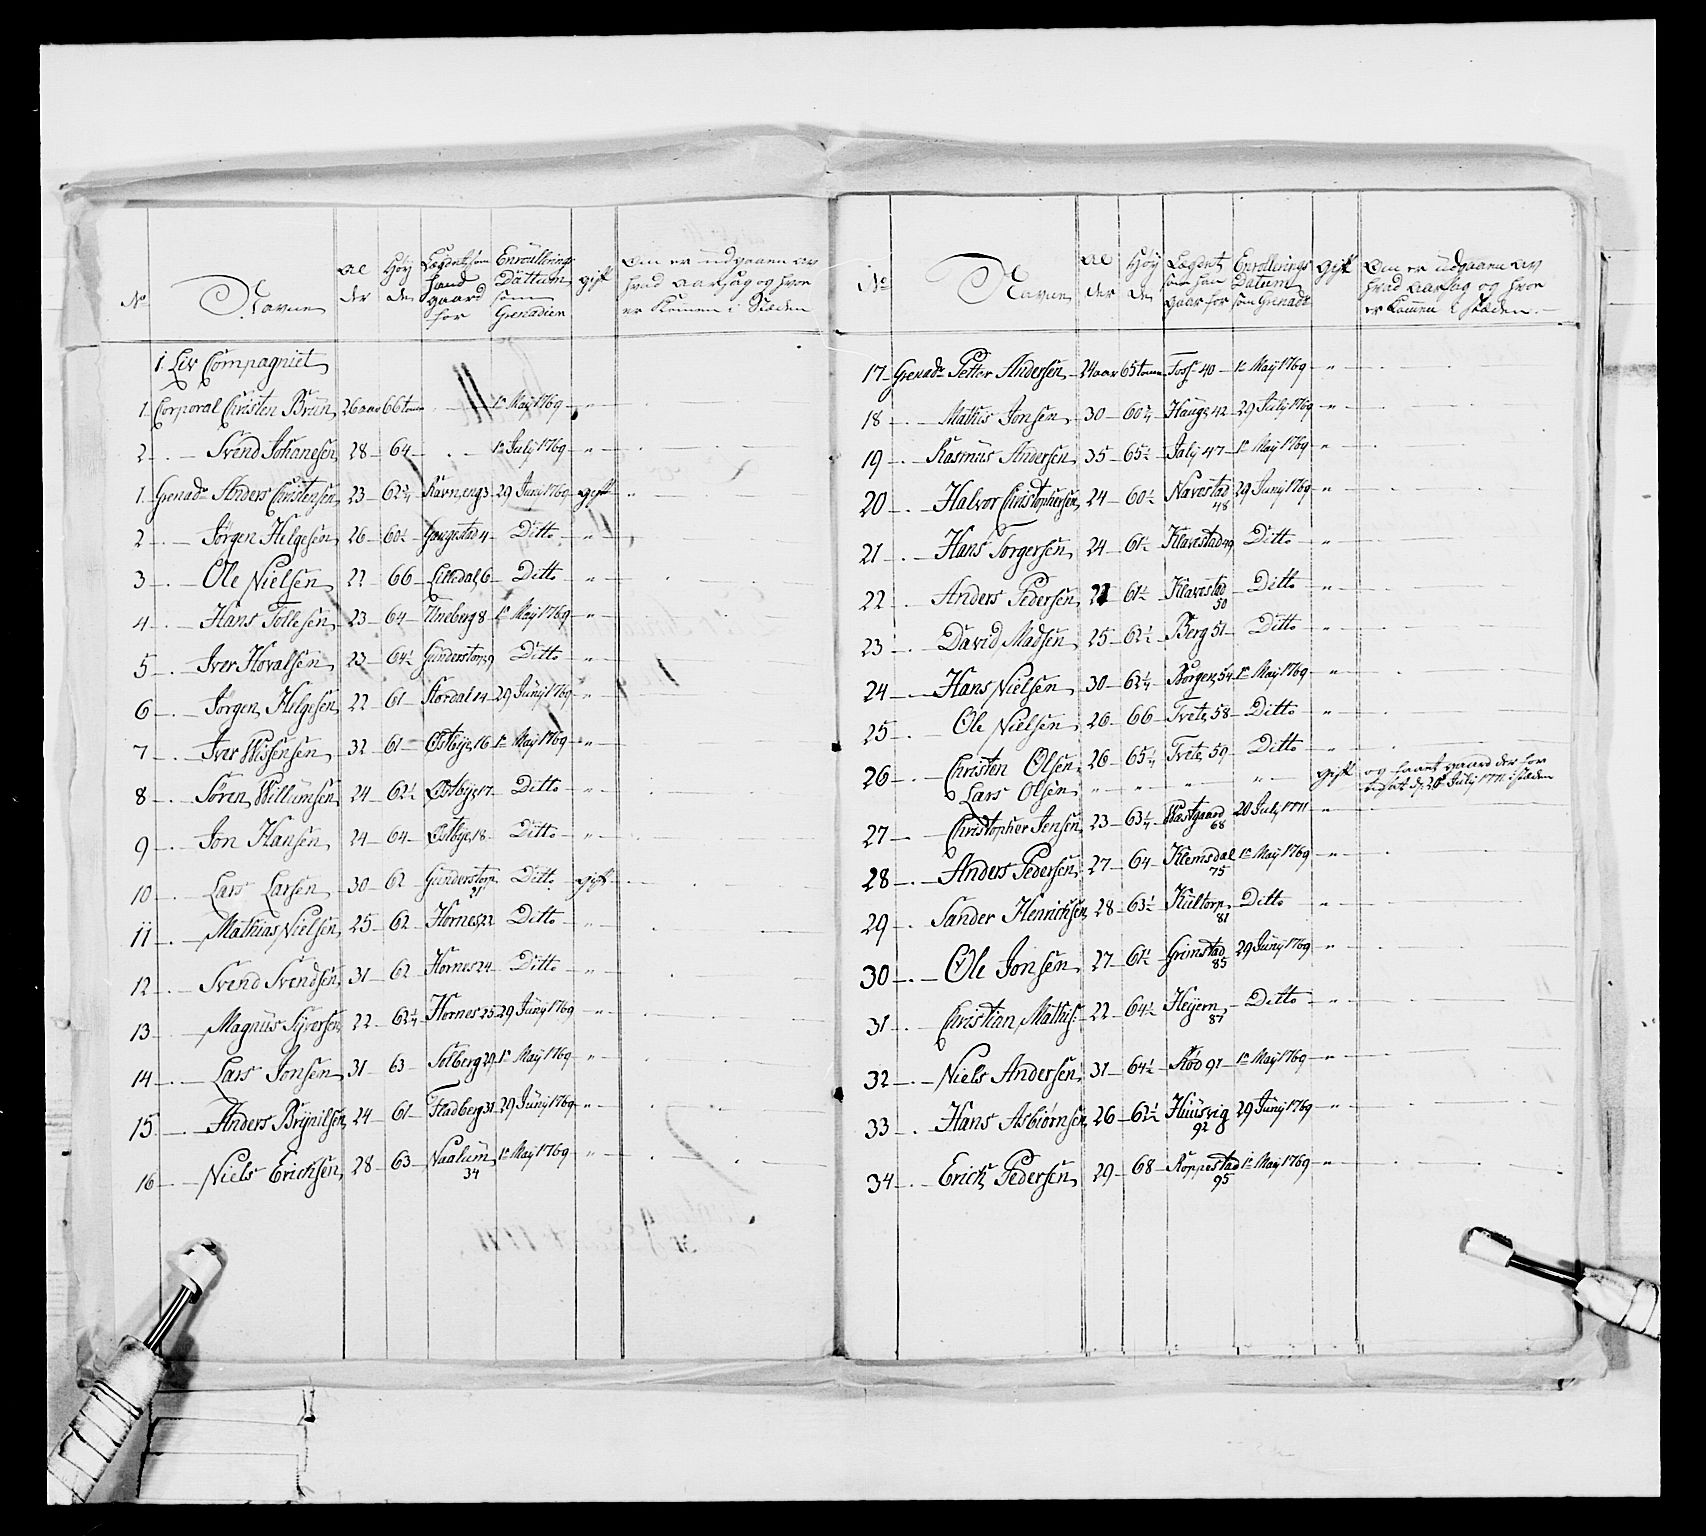 No
Navne
Al
der
Høy
de
Enroullerings
Dattum
som
Grenadeer
gift
Om er udgaaen av
hvad aarsag og hvor
er Komen i Stæden
1. Liv Compagniet
1 Corporal Christen Brun 26 aar 66 tom . 1e May 1769 "
2 Svend Johanesen 28 64 . 1e July 1769 "
1 Grenadr Anders Christensen 23 62¾ Ravneng 3 29 Junij 1769 gift "
2 Jørgen Helgesen 26 60½ Hougestad 4 Ditto "
3 Ole Nielsen 22 66 Lilledal 6 Ditto "
4 Hans Tollesen 23 64 Uneberg 8 1e May 1769 "
5 Iver Hovalsen 23 64½ Gunderstorp 9 Ditto "
6 Jørgen Helgesen 22 61 Stordal 14 29 Junij 1769 "
7 Iver Nissensen 32 61 Østbye 16 1e May 1769 "
8 Søren Willumsen 24 62½ Østbye 17 Ditto "
9 Jon Hansen 24 64 Østbye 18 Ditto "
10 Lars Larsen 30 62 Gunderstorp 21 Ditto gift
11 Mathias Nielsen 25 62 Hornes 22 Ditto "
12 Svend Svendsen 31 62 Hornes 24 Ditto "
13 Magnus Syversen 22 62¼ Hornes 25 29 Junij 1769 "
14 Lars Jonsen 31 63 Solberg 29 1e May 1769 "
15 Anders Brynilsen 24 61 Fladberg 31 29 Junij 1769 "
16 Niels Erichsen 28 63 Naalum 34 1e May 1769 "
No
Navne
Al
der
Høy
de
Lægdet
som han
gaar for
Enrollerings
Datum
som Grenadr
gift
Om er udgaaen av
hvad aarsag og hvor
er Kommen i stæden
17 Grenadr Petter Andersen 24 aar 65 tom Foss 40 1e May 1769 "
18 Mathis Jonsen 30 60¾ Hauge 42 29 July 1769 "
19 Rasmus Andersen 35 65½ Jaly 47 1e May 1769 "
20 Halvor Christophersen 24 60½ Navestad 48 29 Junij 1769 "
21 Hans Torgersen 24 61½ Klavestad 49 Ditto "
22 Anders Pedersen 61½ Klavestad 50 Ditto "
23 David Madsen 25 62½ Berg 51 Ditto "
24 Hans Nielsen 30 62¼ Borgen 54 1e May 1769 "
25 Ole Nielsen 26 66 Tvete 58 Ditto "
26 Christen Olsen 26 65¼ Tvete 59 Ditto "
Lars Olsen " " " " gift og haver gaard der for
July 1771 i stæden
27 Christopher Jensen 23 63¼ Westgaard 68 20 July 1771 "
28 Anders Pedersen 27 64 Klemsdal 75 1e May 1769 "
29 Sander Henrichsen 28 63½ Kultorp 81 Ditto "
30 Ole Jonsen 27 61½ Grimstad 85 29 Junij 1769 "
31 Christian Mathis: 22 64½ Heyern 87 Ditto "
32 Niels Andersen 31 64½ Rød 91 1e May 1769 "
33 Hans Asbiørnsen 26 62½ Huusvig 92 29 Junij 1769 "
34 Erich Pedersen 29 68 Roppestad 95 1e May 1769 "